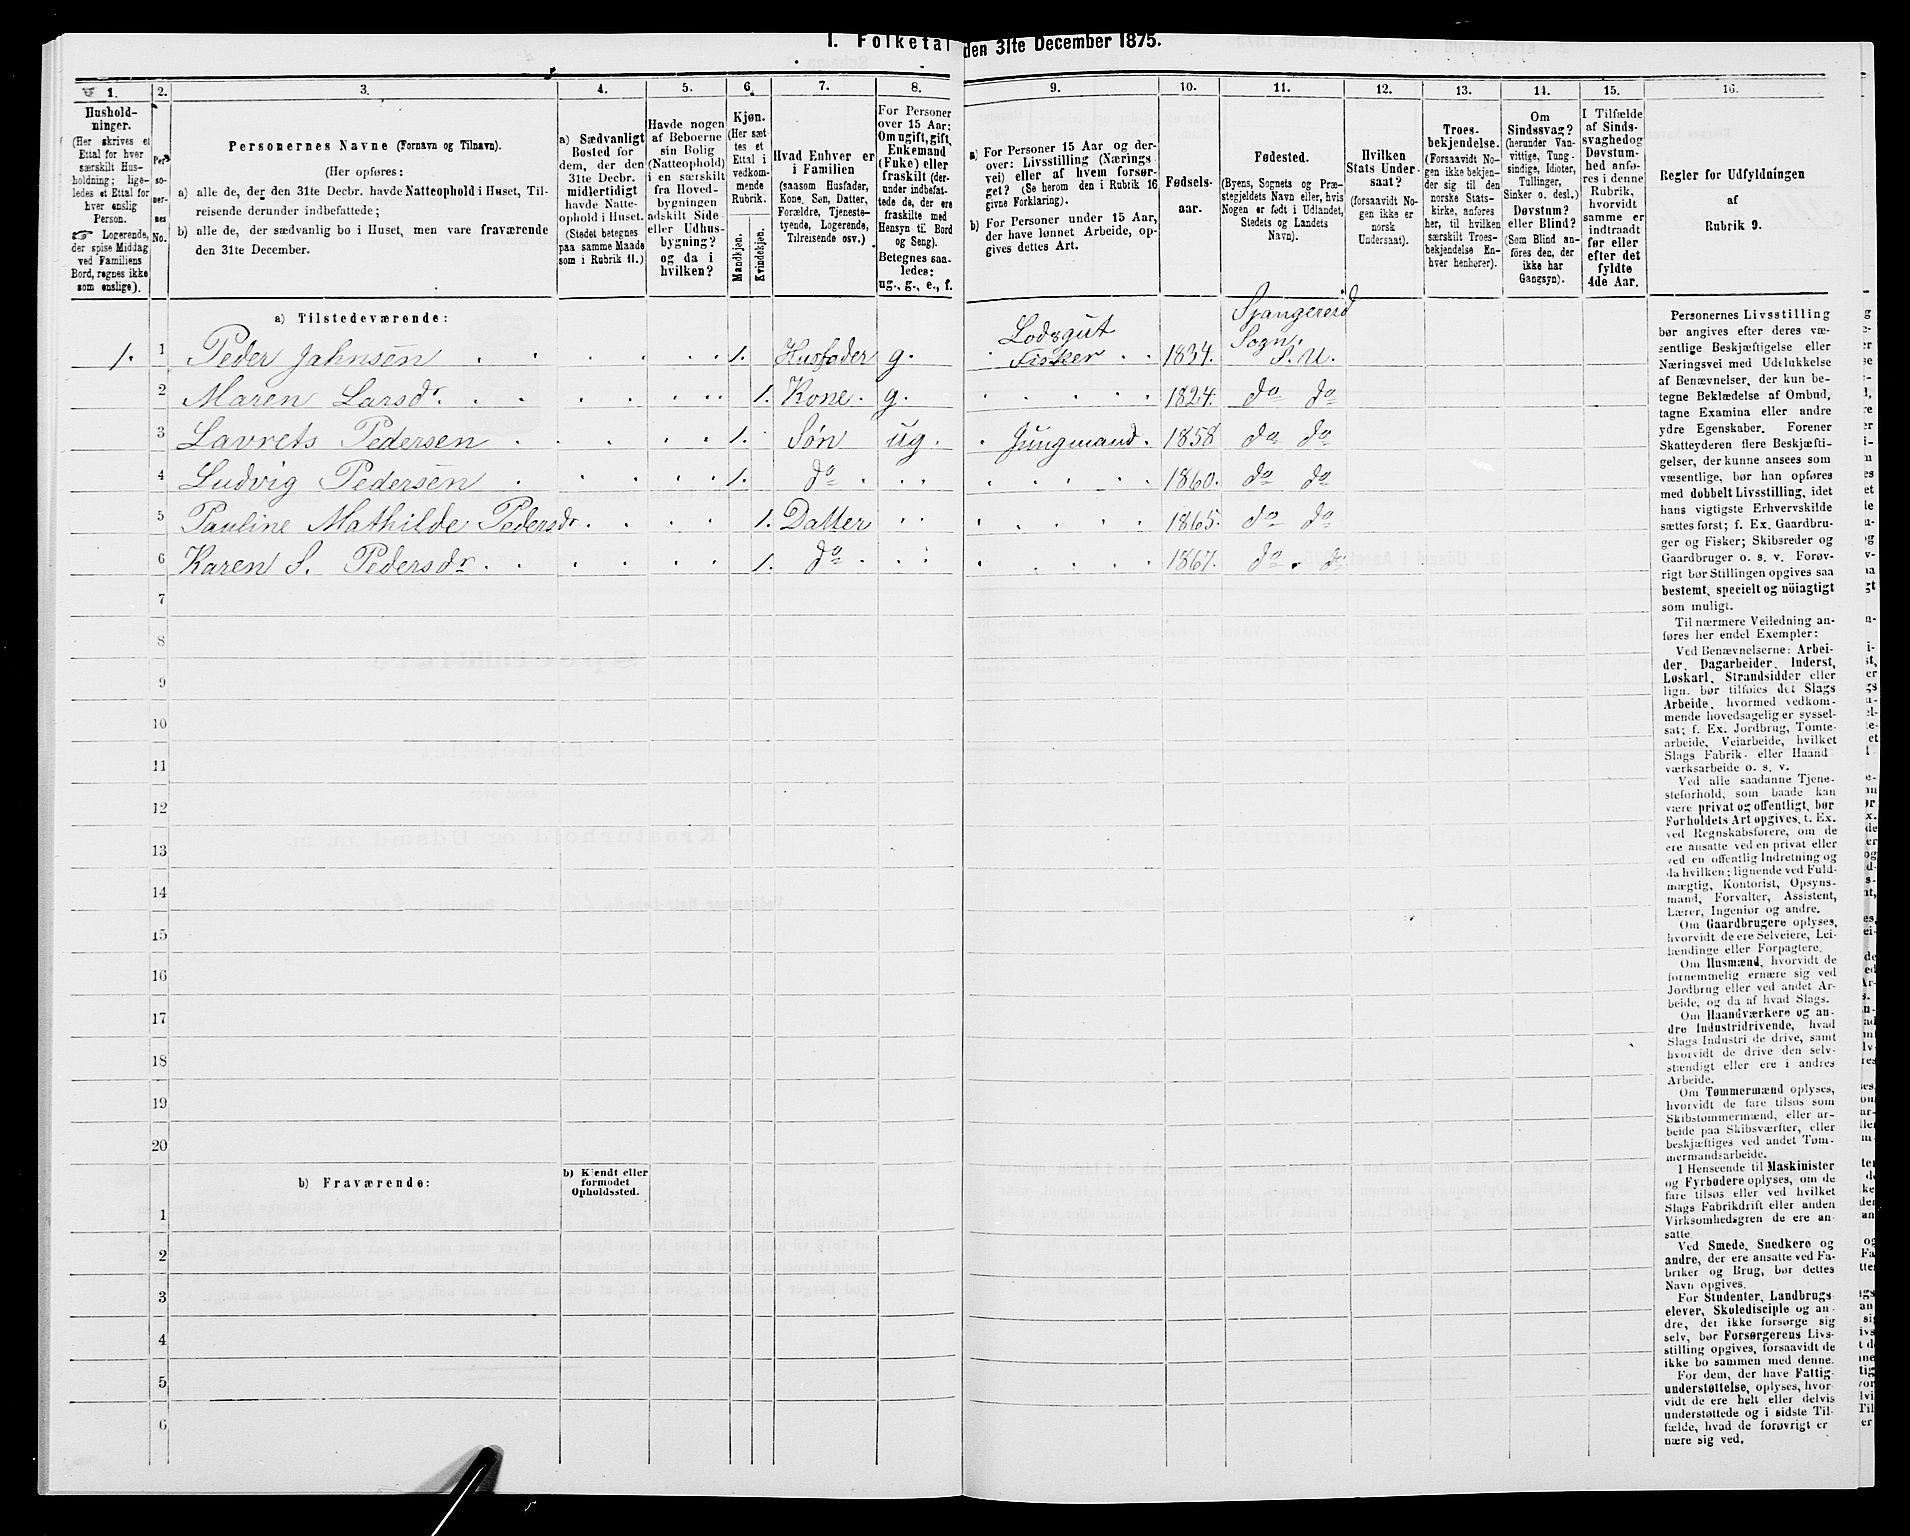 I. Folketal den 31te December 1875.
1. 2. 3. 4. 5. 6. 7. 8. 9. 10. 11. 12. 13. 14. 15. 16.
Hushold-
ninger.
(Her skrives et
Ettal for hver
særskilt Hus-
holdning; lige-
ledes et Ettal for
hver enslig
Person.
☞ Logerende,
der spise Middag
ved Familiens
Bord, regnes ikke
som enslige).
Per-
so-
ner-
nes
No.
Personernes Navne (Fornavn og Tilnavn).
(Her opføres:
a) alle de, der den 31te Decbr. havde Natteophold i Huset, Til-
reisende derunder indbefattede;
b) alle de, der sædvanlig bo i Huset, men vare fraværende
den 31te December.
a) Sædvanligt
Bosted for
dem, der den
31te Decbr.
midlertidigt
havde Natte-
ophold i Huset.
(Stedet betegnes
paa samme Maade
som i Rubrik 11.)
Havde nogen
af Beboerne
sin Bolig
(Natteophold)
i en særskilt
fra Hoved-
bygningen
adskilt Side-
eller Udhus-
bygning?
og da i
hvilken?
Kjøn.
(Her sæt-
tes et
Ettal i
vedkom-
mende
Rubrik.
Mandkjøn.
Kvindekjøn.
Hvad Enhver er
i Familien
(saasom Husfader,
Kone, Søn, Datter,
Forældre, Tjeneste-
tyende, Logerende,
Tilreisende osv.)
For Personer
over 15 Aar:
Om ugift, gift,
Enkemand
(Enke) eller
fraskilt (der-
under indbefat-
tede de, der ere
fraskilte med
Hensyn til Bord
og Seng).
Betegnes saa-
ledes:
ug., g., e., f.
a) For Personer 15 Aar og der-
over: Livsstilling (Nærings-
vei) eller af hvem forsør-
get? (Se herom den i Rubrik 16
givne Forklaring).
b) For Personer under 15 Aar,
der have lønnet Arbeide, op-
gives dettes Art.
Fødsels-
aar.
Fødested.
(Byens, Sognets og Præ-
stegjeldets Navn eller, hvis
Nogen er født i Udlandet,
Stedets og Landets
Navn).
Hvilken
Stats Under-
saat?
(forsaavidt No-
gen ikke er
norsk
Undersaat).
Troes-
bekjendelse.
(Forsaavidt No-
gen ikke bekjen-
der sig til den
norske Stats-
kirke, anføres
her, til hvilken
særskilt Troes-
bekjendelse En-
hver henhører).
Om
Sindssvag?
(herunder Van-
vittige, Tung-
sindige, Idioter,
Tullinger,
Sinker o. desl.)
Døvstum?
eller Blind?
(Som Blind an-
føres den, der
ikke har
Gangsyn).
I Tilfælde
af Sinds-
svaghed og
Døvstum-
hed anfø-
res i denne
Rubrik,
hvorvidt
samme er
indtraadt
før eller
efter det
fyldte
4de Aar.
Regler for Udfyldningen
af
Rubrik 9.
a) Tilstedeværende:
1. 1 Peder Jahnsen 1. Husfader g. Lodsgut Fisker 1834. Sjangereid Sogn. S. U.
2 Maren Larsdr. 1. Kone. g. 1824. do do
3 Lavrets Pedersen 1. Søn ug. Jungmand. 1858 do do
4 Ludvig Pedersen 1. do 1860. do do
5 Pauline Mathilde Pedersdr. 1. Datter 1865. do do
6 Karen S. Pedersdr. 1. do 1867. do do
7
8
9
10
11
12
13
14
15
16
17
18
19
20
b) Fraværende:
b) Kjendt eller
formodet
Opholdssted.
1
2
3
4
5
6
Personernes Livsstilling
bør angives efter deres væ-
sentlige Beskjæftigelse eller
Næringsvei med Udelukkelse
af Benævnelser, der kun be-
tegne Beklædelse af Ombud,
tagne Examina eller andre
ydre Egenskaber. Forener
Skatteyderen flere Beskjæfti-
gelser, der kunne ansees som
væsentlige, bør han opføres
med dobbelt Livsstilling, idet
hans vigtigste Erhvervskilde
sættes først; f. Ex. Gaardbru-
ger og Fisker; Skibsreder og
Gaardbruger o. s. v. Forøv-
rigt bør Stillingen opgives saa
bestemt, specielt og nöiagtigt
som muligt.
Til nærmere Veiledning an-
føres her endel Exempler:
Ved Benævnelserne: Arbei-
der, Dagarbeider, Inderst,
Løskarl, Strandsidder eller
lign. bør tilføies det Slags
Arbeide, hvormed vedkom-
mende hovedsagelig er syssel-
sat; f. Ex. Jordbrug, Tomte-
arbeide, Veiarbeide, hvilket
Slags Fabrik- eller Haand
værksarbeide o. s. v.
Ved alle saadanne Tjene-
steforhold, som baade kan
være privat og offentligt, bør
Forholdets Art opgives, t. Ex.
ved Regnskabsførere, om de
ere ansatte ved en privat eller
ved en offentlig Indretning og
da hvilken; lignende ved Fuld-
mægtig, Kontorist, Opsyns-
mand, Forvalter, Assistent,
Lærer, Ingeniør og andre.
Om Gaardbrugere oplyses,
hvorvidt de ere Selveiere, Lei-
lændinge eller Forpagtere.
Om Husmænd, hvorvidt de
fornemmelig ernære sig ved
Jordbrug eller ved andet Ar-
beide, og da af hvad Slags.
Om Haandværkere og an-
dre Industridrivende, hvad
Slags Industri de drive, samt
hvorvidt de drive den selv-
stændigt eller ere i andres
Arbeide.
Om Tømmermænd oplyses,
hvorvidt de fare tilsøs som
Skibstømmermænd, eller ar-
beide paa Skibsværfter, eller
beskjæftiges ved andet Tøm-
mermandsarbeide.
I Henseende til Maskinister
og Fyrbødere oplyses, om de
fare tilsøs eller ved hvilket
Slags Fabrikdrift eller anden
Virksomhedsgren de ere an-
satte.
Ved Smede, Snedkere og
andre, der ere ansatte ved Fa-
briker og Brug, bør dettes
Navn opgives.
For Studenter, Landbrugs
elever, Skoledisciple og an-
dre, der ikke forsørge sig
selv, bør Forsørgerens Livs-
stilling opgives, forsaavidt de
ikke bo sammen med denne.
For dem, der have Fattig-
understøttelse, oplyses, hvor-
vidt de ere helt eller delvis
understøttede og i sidste Til-
fælde, hvad de forøvrigt er
nære sig ved.